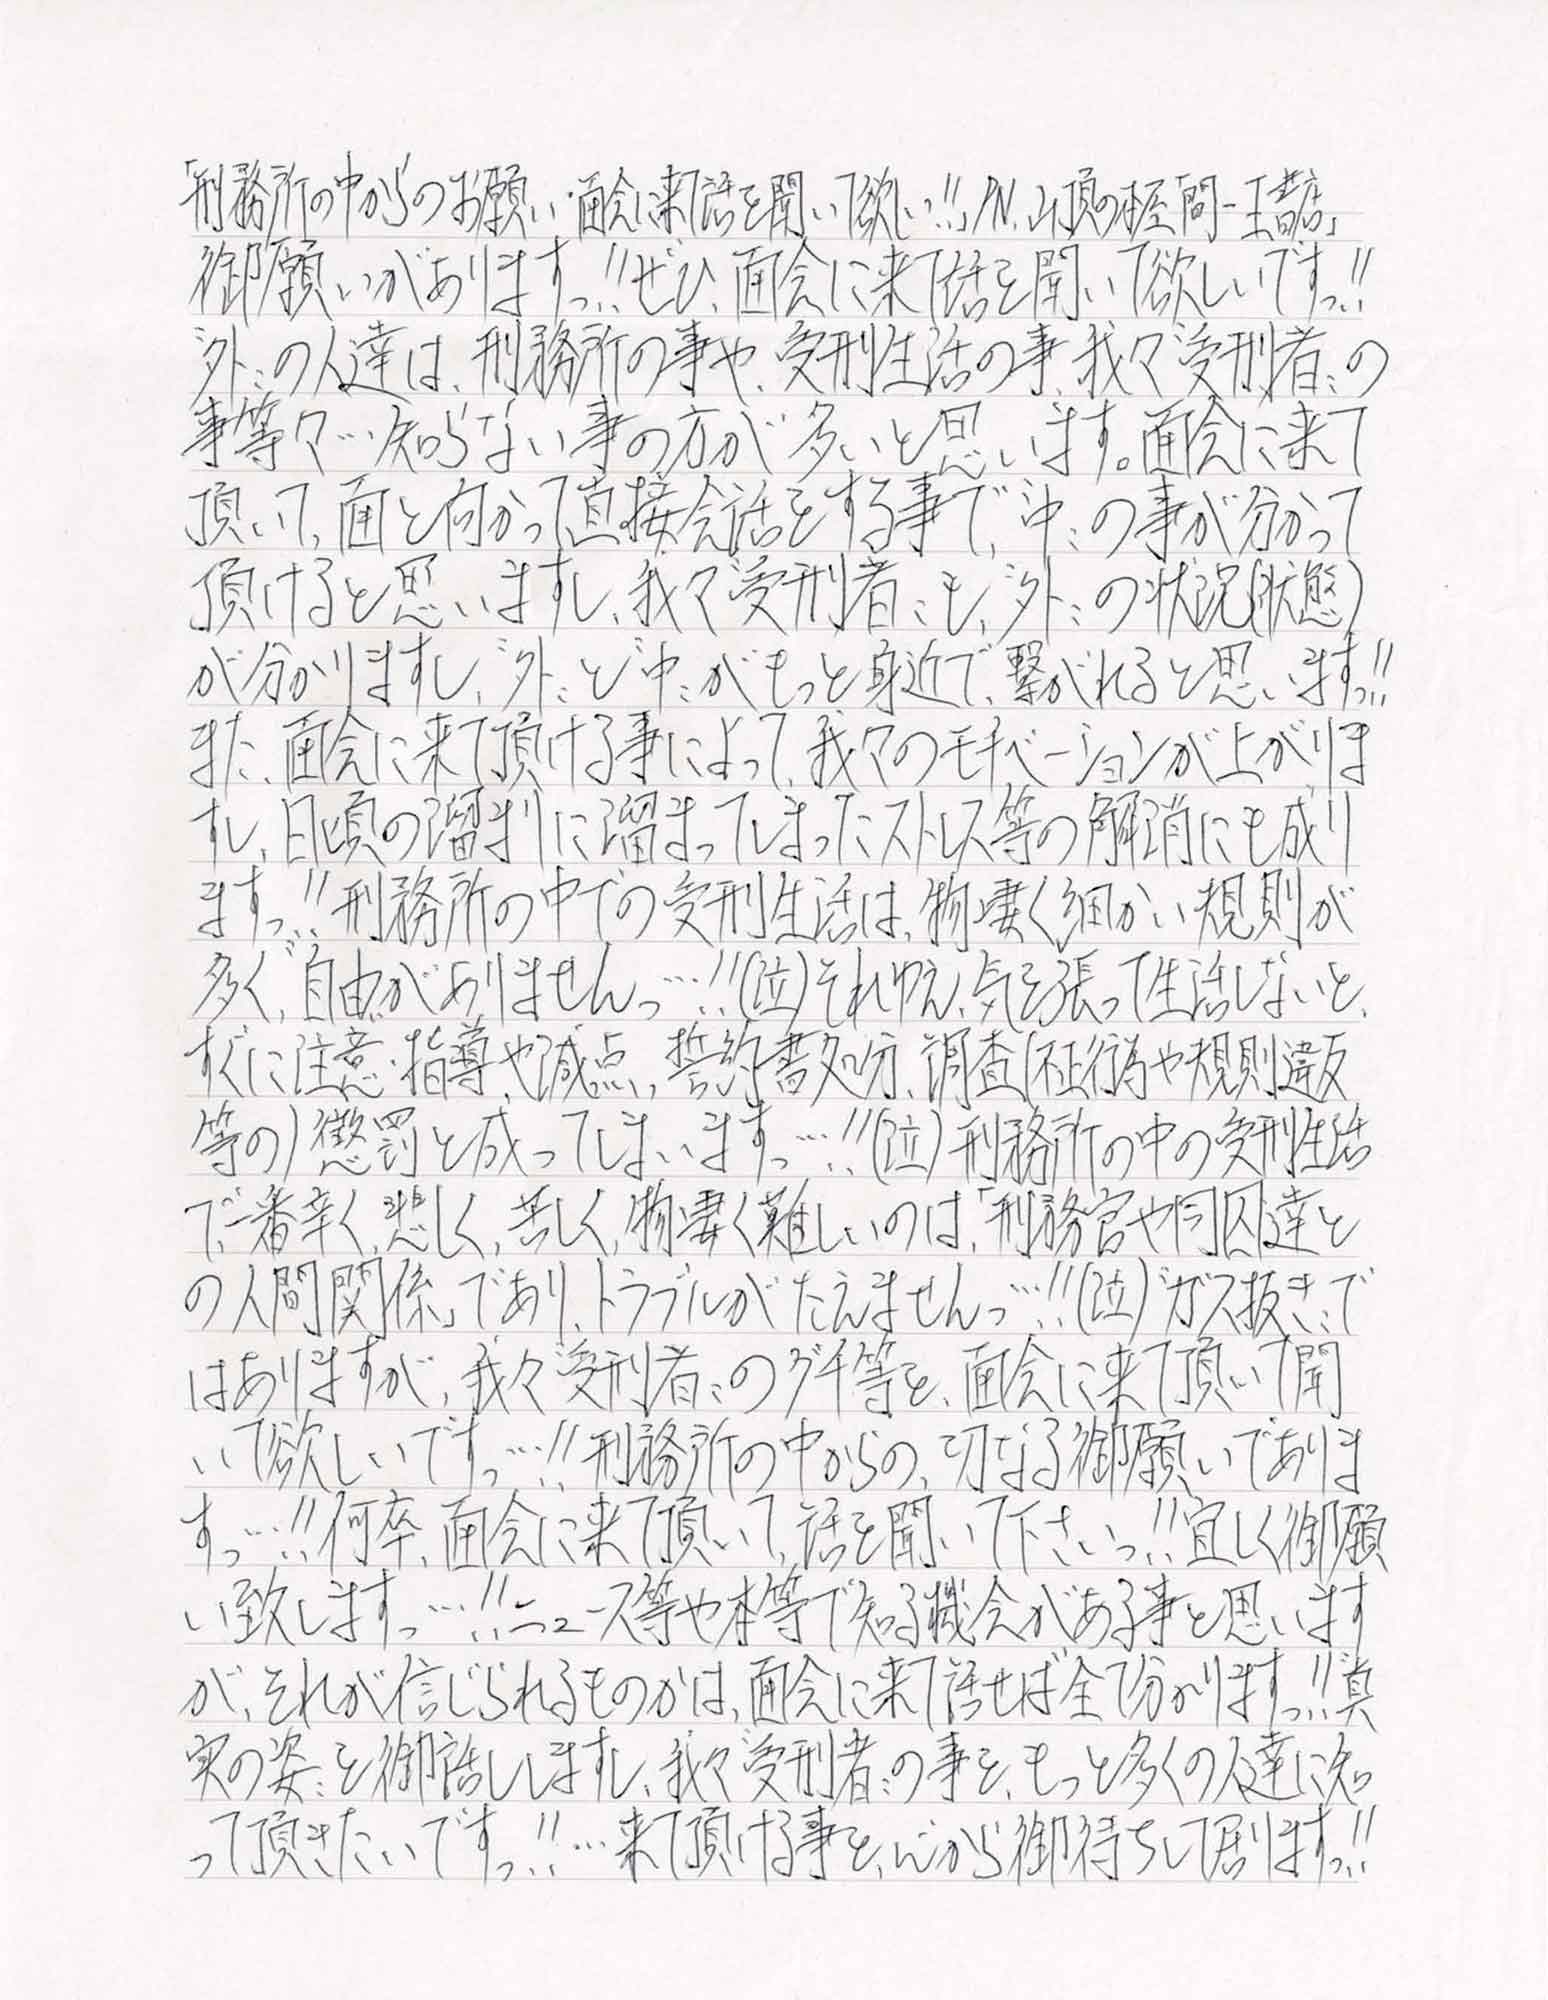 「刑務所の中からのお願い・面会に来て話を聞いて欲しい!!」PN.山頂の本屋「間一王書店」
御願いがありますっ!!ぜひ、面会に来て話を聞いて欲しいですっ!!
〝外〟の人達は、刑務所の事や、受刑生活の事、我々〝受刑者〟の
事等々…知らない事の方が多いと思います。面会に来て
頂いて、面と向かって直接会話をする事で、〝中〟の事が分かって
頂けると思いますし、我々〝受刑者〟も、〝外〟の状況(状態)
が分かりますし、〝外〟と〝中〟がもっと身近で、繋がれると思いますっ!!
また、面会に来て頂ける事によって、我々のモチベーションが上がりま
すし、日頃の溜まりに溜まってしまったストレス等の解消にも成り
ますっ!!刑務所の中での受刑生活は、物凄く細かい規則が
多く、〝自由〟がありませんっ…!!(泣)それゆえ、気を張って生活しないと、
すぐに注意・指導や減点、誓約書処分、調査(不正行為や規則違反
等の)懲罰と成ってしまいますっ…!!(泣)刑務所の中の受刑生活
で、一番辛く、悲しく、苦しく、物凄く難しいのは、「刑務官や同囚達と
の人間関係」であり、トラブルがたえませんっ…!!(泣)〝ガス抜き〟で
はありますが、我々〝受刑者〟のグチ等を、面会に来て頂いて聞
いて欲しいですっ…!!刑務所の中からの、切なる御願いでありま
すっ…!!何卒、面会に来て頂いて、話を聞いて下さいっ!!宜しく御願
い致しますっ…!!ニュース等や本等で知る機会がある事と思います
が、それが信じられるものかは、面会に来て話せば全て分かりますっ!!〝真
実の姿〟を御話ししますし、我々〝受刑者〟の事を、もっと多くの人達に知
って頂きたいですっ!!…来て頂ける事を、心から御待ちして居りますっ!!